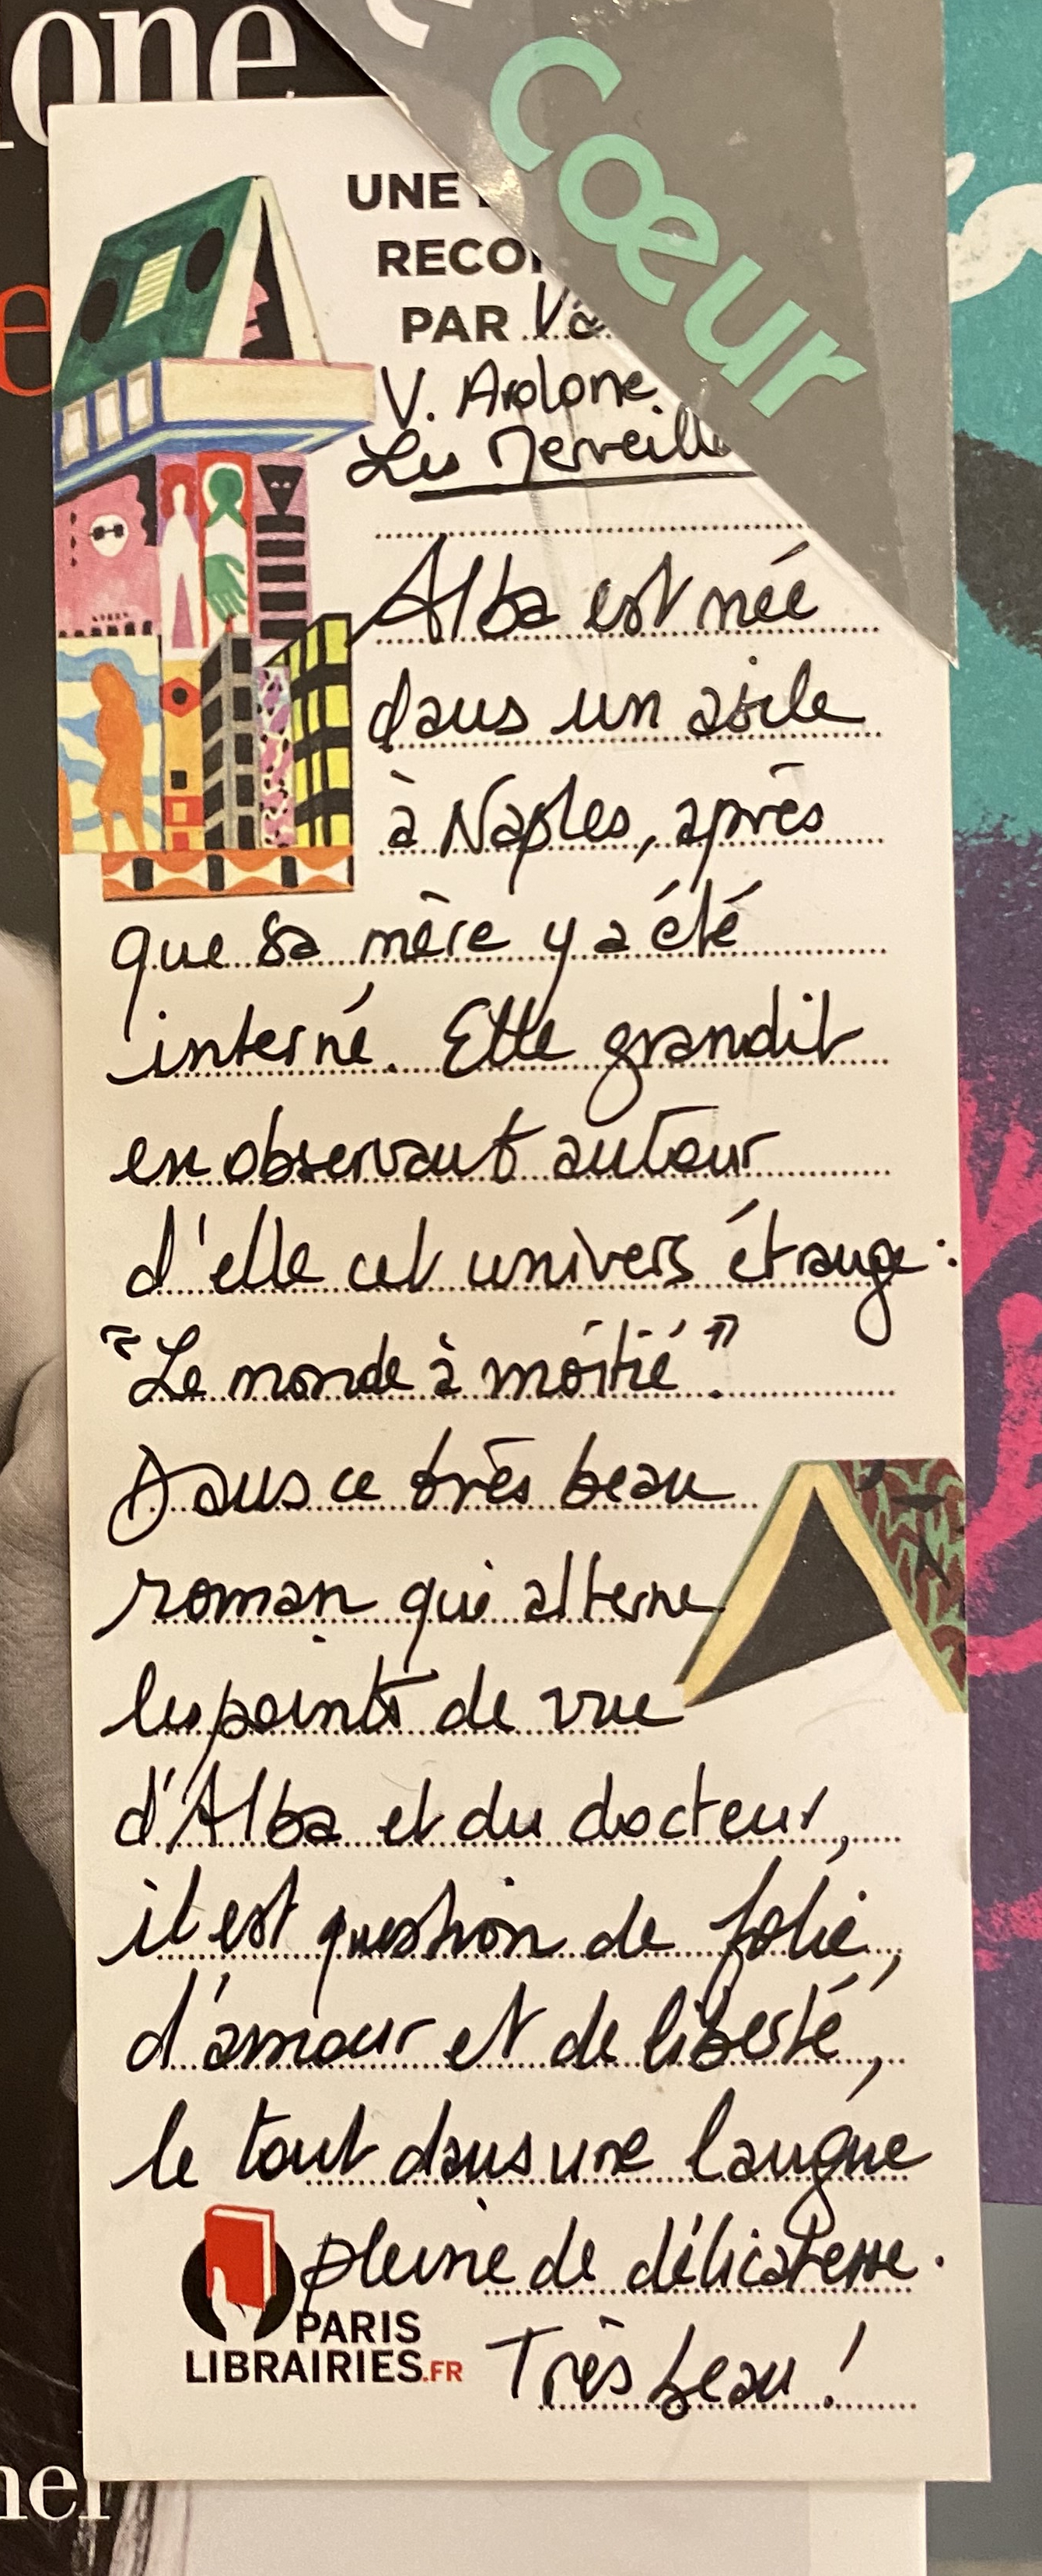 one
e
cœur
UNE
RECO
PAR Va
V. Ardone
Les Merveill
Alba est née
dans un asile
à Naples, après
que sa mère y a été
interné. Elle grandit
en observant autour
d'elle cet univers étrange :
"Le monde à moitié".
Dans ce très beau
roman qui alterne
les points de vue
d'Alba et du docteur,
il est question de folie,
d'amour et de liberté,
le tout dans une langue
pleine de délicatesse.
PARIS
LIBRAIRIES.FR
Très beau !
nel